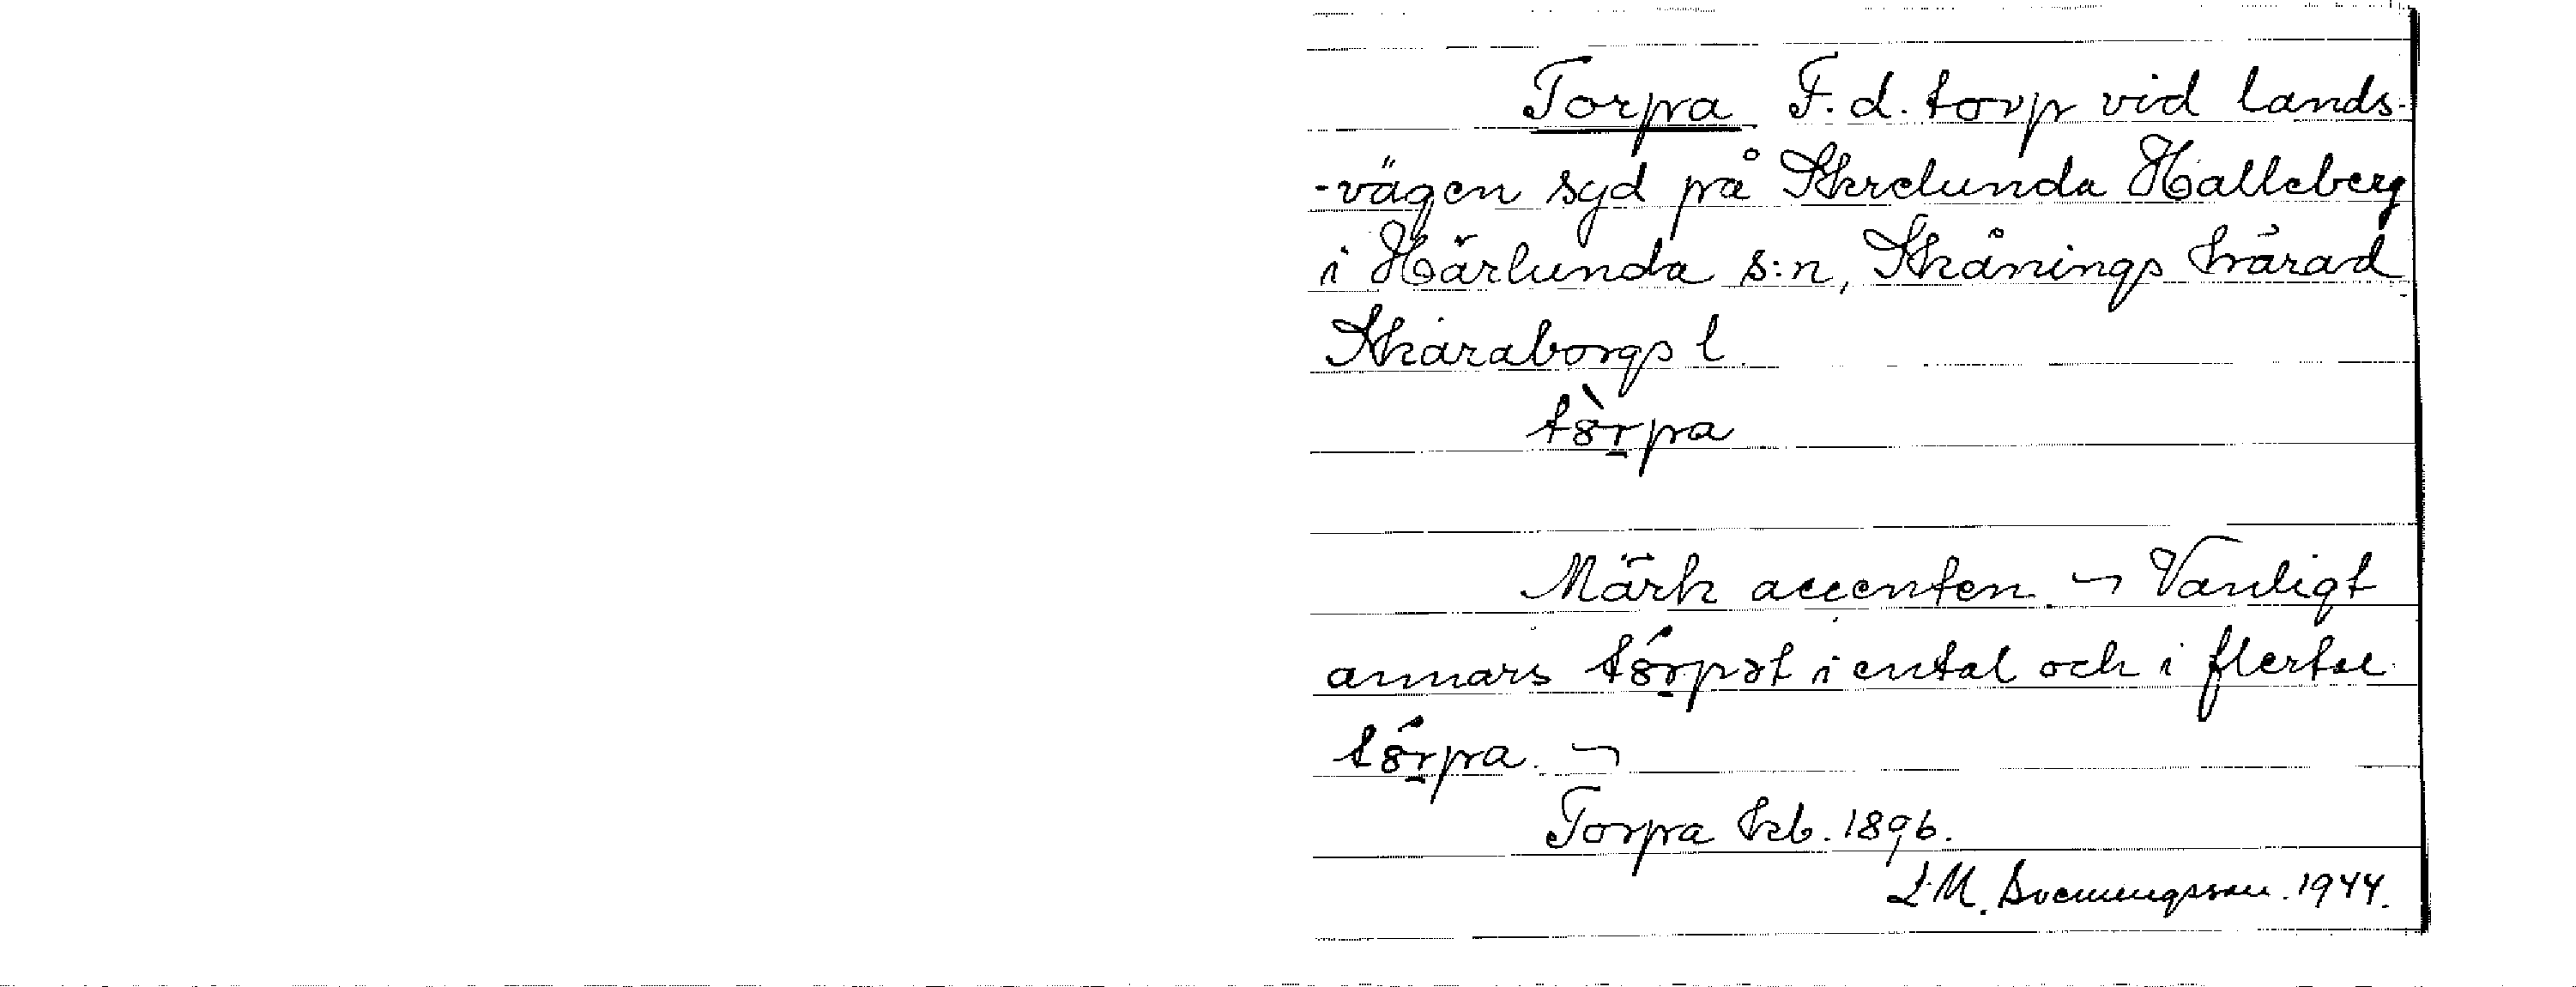 Torpa F.d. torp vid lands-
-vägen syd på Skrelunda Halleberg
i Härlunda s:n, Skånings härad
Skaraborgs l.
tȣ̀rpa
Märk accenten ¬ Vanligt
annars tȣ́rpət i ental och i flertal
tȣ́rpa. ¬
Torpa kb. 1896.
L.M. Svenungsson. 1944.